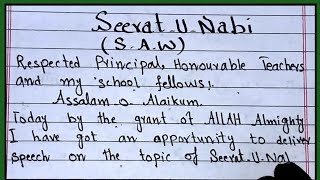 Seerat-U-Nabi
(S.A.W)
Respected Principal, Honourable Teachers
and my school fellows;
Assalam-o-Alaikum.
Today by the grant of ALLAH Almighty
I have got an opportunity to deliver
speech on the topic of Seerat-U-Na